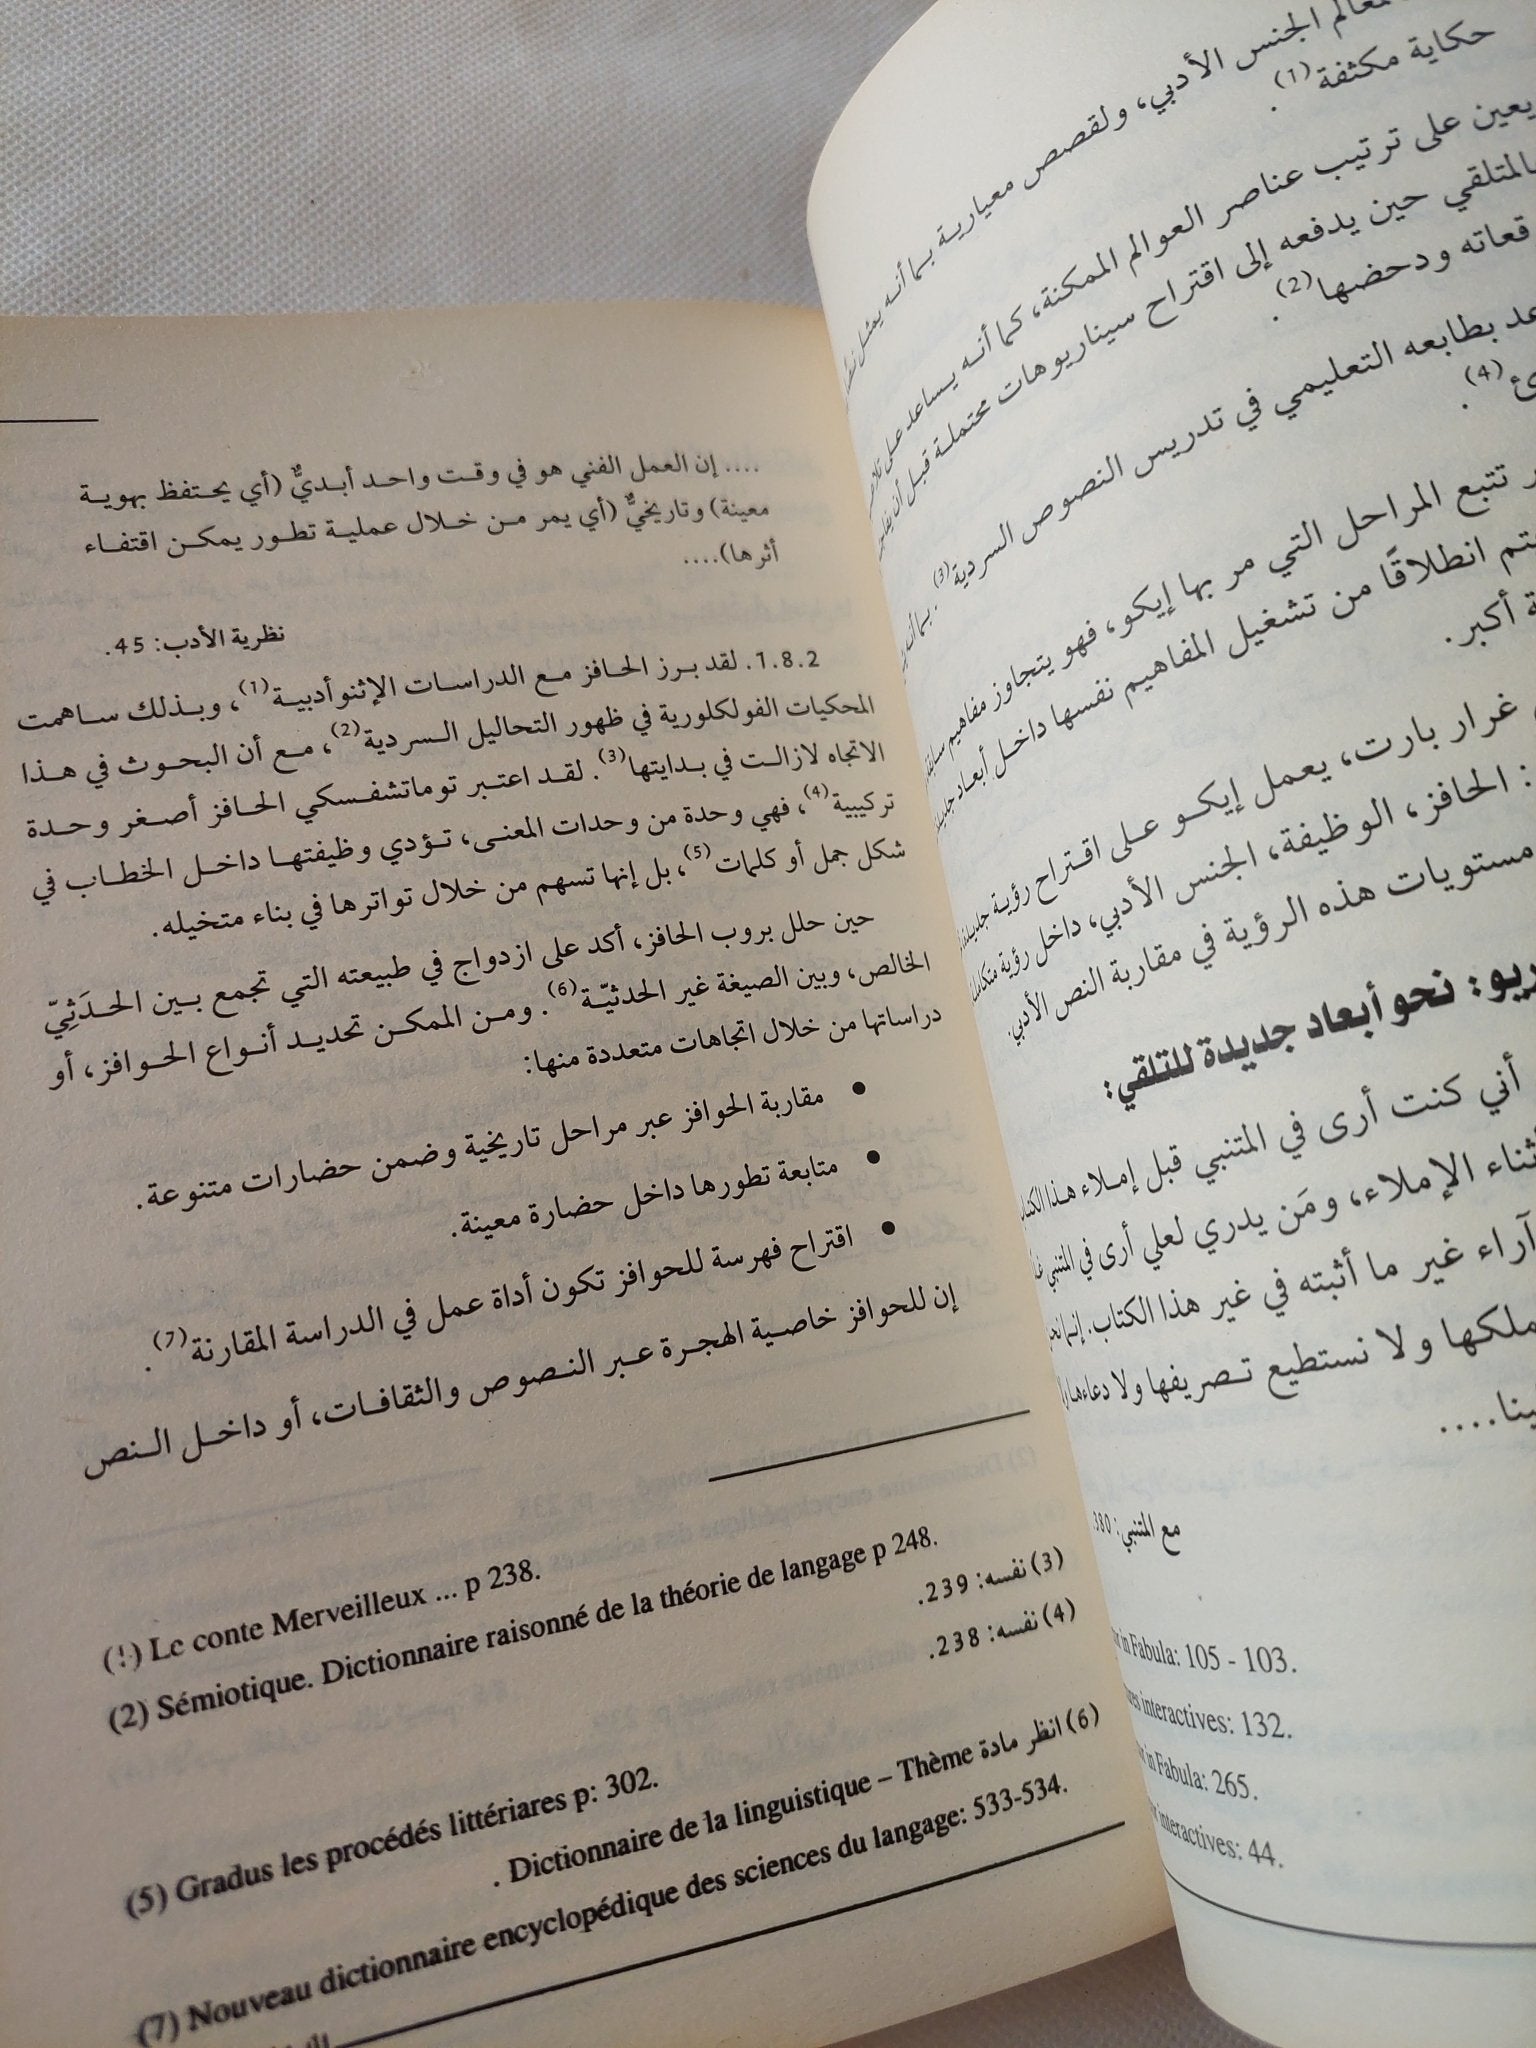 معالم الجنس الأدبي، ولقصص معيارية بما أنه يمثل
حكاية مكثفة(1).
يعين على ترتيب عناصر العوالم الممكنة، كما أنه يساعد على
بالمتلقي حين يدفعه إلى اقتراح سيناريوهات محتملة قبل أن
ودحضها(2).
بطابعه التعليمي في تدريس النصوص السردية(3). بما أن
(4).
تتبع المراحل التي مر بها إيكو، فهو يتجاوز مفاهيم
انطلاقًا من تشغيل المفاهيم نفسها داخل أبعاد
أكبر.
غرار بارت، يعمل إيكو على اقتراح رؤية
: الحافز، الوظيفة، الجنس الأدبي، داخل رؤية
مستويات هذه الرؤية في مقاربة النص الأدبي.
نحو أبعاد جديدة للتلقي:
أني كنت أرى في المتنبي قبل إملاء هذا
أثناء الإملاء، ومَن يدري لعلي أرى في المتنبي
آراء غير ما أثبته في غير هذا الكتاب. إنما
ولا نستطيع تصريفها ولا دعاءها
....
مع المتنبي: 380
in Fabula: 105 - 103.
interactives: 132.
in Fabula: 265.
interactives: 44.
.... إن العمل الفني هو في وقت واحد أبديٌّ (أي يحتفظ بهوية
معينة) وتاريخيٌّ (أي يمر من خلال عملية تطور يمكن اقتفاء
أثرها)....
نظرية الأدب: 45.
1.8.2. لقد برز الحافز مع الدراسات الإثنوأدبية(1)، وبذلك ساهمت
المحكيات الفولكلورية في ظهور التحاليل السردية(2)، مع أن البحوث في هذا
الاتجاه لازالت في بدايتها(3). لقد اعتبر توماتشفسكي الحافز أصغر وحدة
تركيبية(4)، فهي وحدة من وحدات المعنى، تؤدي وظيفتها داخل الخطاب في
شكل جمل أو كلمات(5)، بل إنها تسهم من خلال تواترها في بناء متخيله.
حين حلل بروب الحافز، أكد على ازدواج في طبيعته التي تجمع بين الحدَثِيّ
الخالص، وبين الصيغة غير الحدثيّة(6). ومن الممكن تحديد أنواع الحوافز، أو
دراساتها من خلال اتجاهات متعددة منها:
• مقاربة الحوافز عبر مراحل تاريخية وضمن حضارات متنوعة.
• متابعة تطورها داخل حضارة معينة.
• اقتراح فهرسة للحوافز تكون أداة عمل في الدراسة المقارنة(7).
إن للحوافز خاصية الهجرة عبر النصوص والثقافات، أو داخل النص
(1) Le conte Merveilleux ... p 238.
(2) Sémiotique. Dictionnaire raisonné de la théorie de langage p 248.
(3) نفسه: 239.
(4) نفسه: 238.
(5) Gradus les procédés littériares p: 302.
(6) انظر مادة Dictionnaire de la linguistique – Thème .
(7) Nouveau dictionnaire encyclopédique des sciences du langage: 533-534.